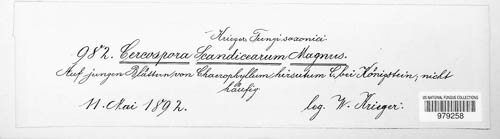 Krieger, Fungi saxonici
982. Cercospora Scandicearum Magnus.
Auf jungen Blättern von Chaerophyllum hirsutum L. bei Königstein, nicht
häufig
11. Mai 1892. leg. W. Krieger.
US NATIONAL FUNGUS COLLECTIONS
979258